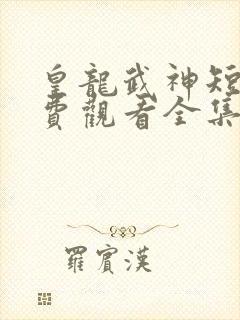 皇龍武神短
費觀看全集
羅賓漢